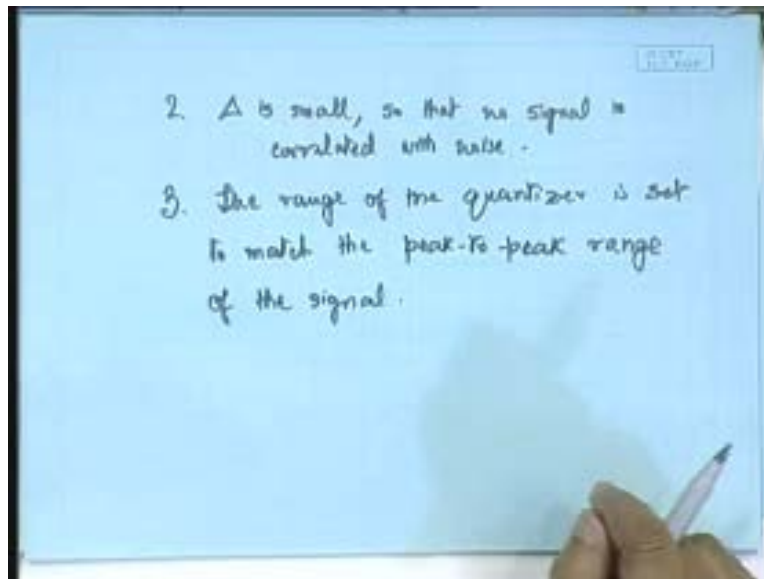 2. Δ is small, so that no signal is
correlated with noise.
3. The range of the quantizer is set
to match the peak-to-peak range
of the signal.